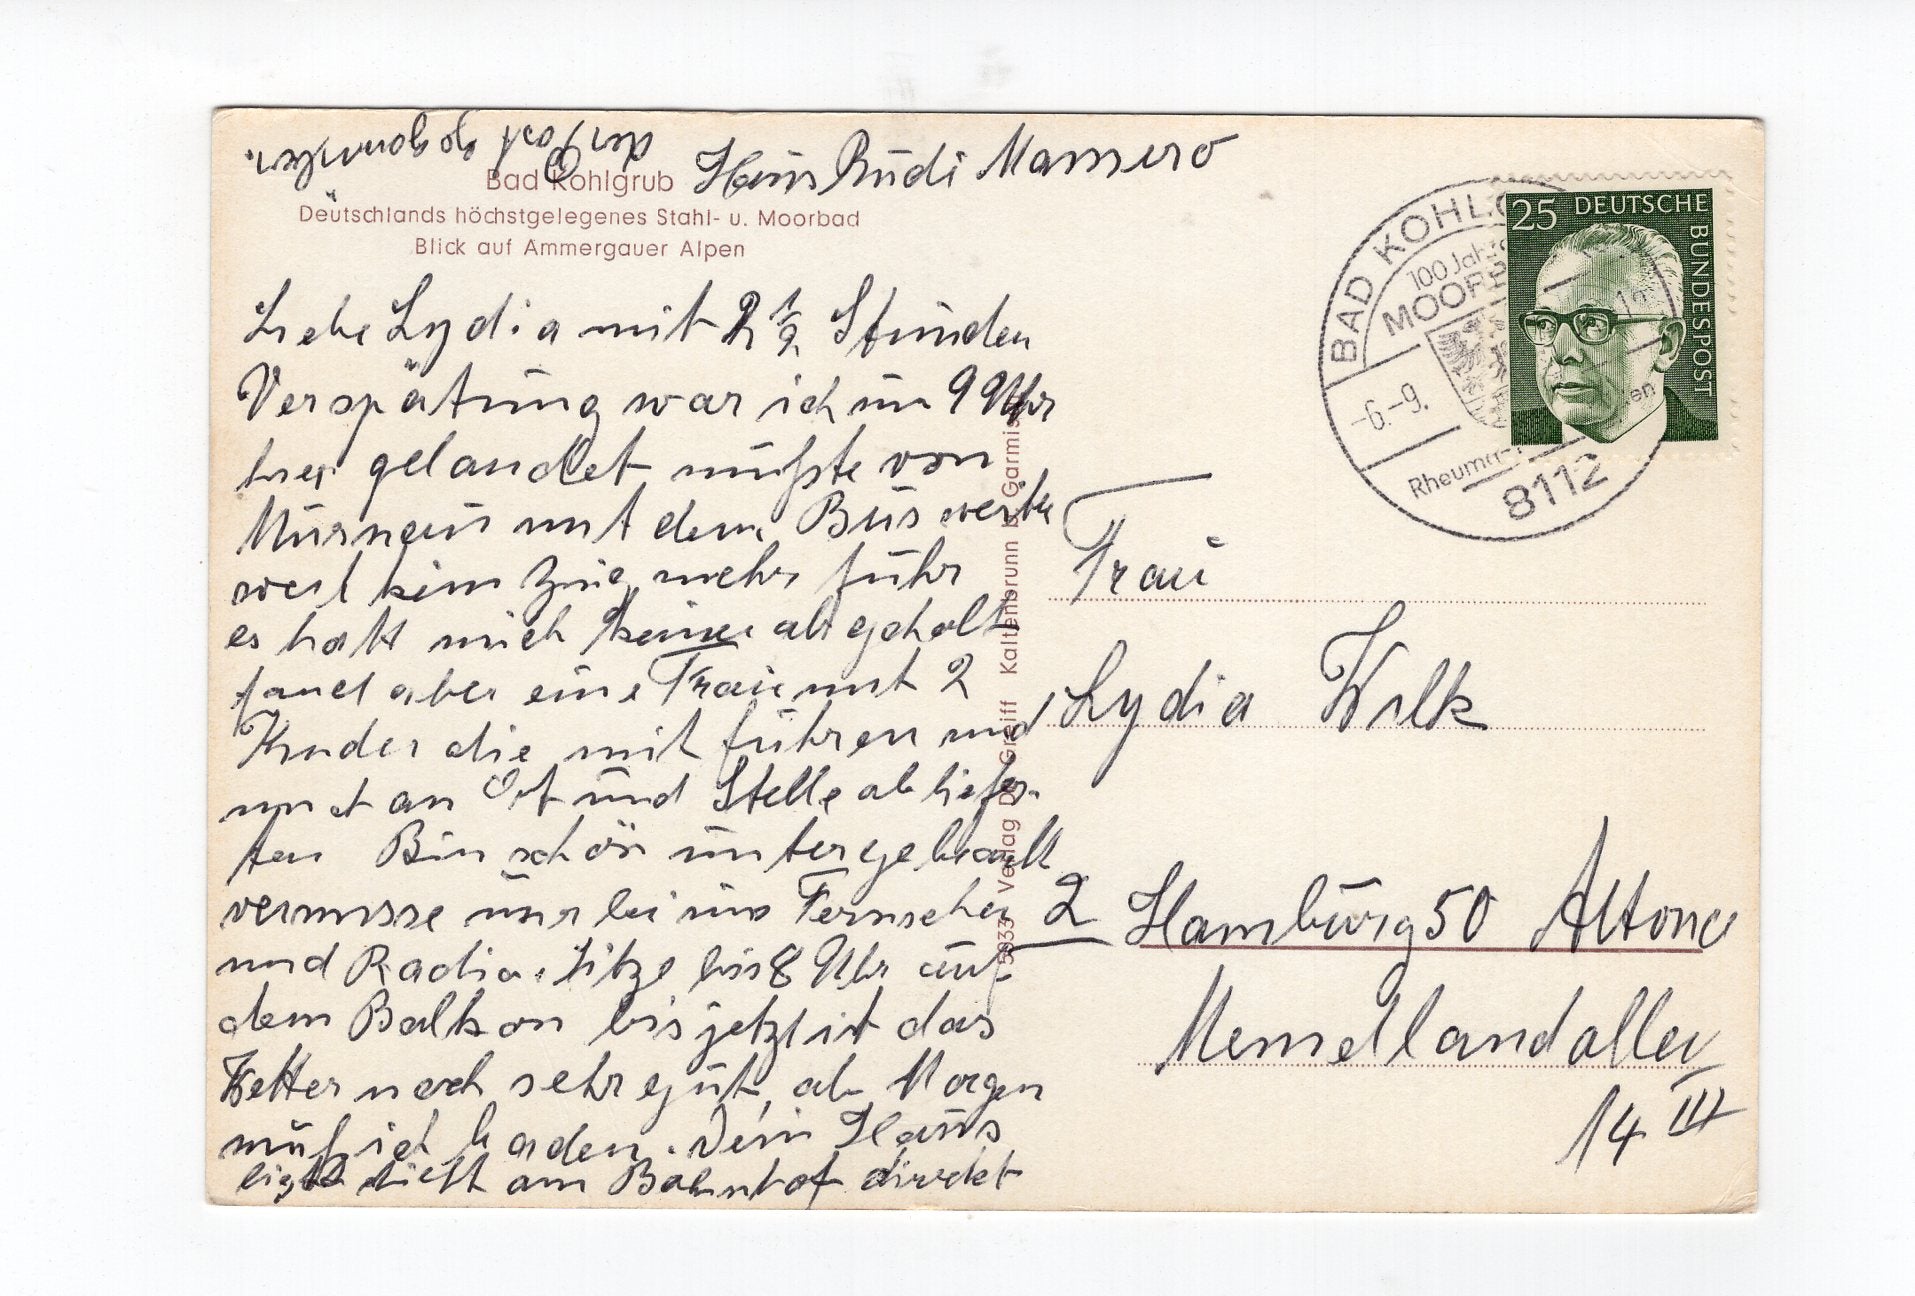 Haus Rudi Mamero
Bad Kohlgrub
Deutschlands höchstgelegenes Stahl- u. Moorbad
Blick auf Ammergauer Alpen
Liebe Lydia mit 2 1/2 Stunden
Verspätung war ich um 9 Uhr
hier gelandet mußte von
Murnau mit dem Bus weiter
weil kein Zug mehr fuhr
es hatt mich keiner abgeholt
fand aber eine Frau mit 2
Kinder die mit fuhren und
mich an Ort und Stelle abliefer-
ten Bin schön untergebracht
vermisse nur bei uns Fernseher
und Radio. sitze bis 8 Uhr auf
dem Balkon bis jetzt ist das
Wetter noch sehr gut, ab Morgen
muß ich baden. Dein Hans
dicht am Bahnhof direckt
der Post gegenüber.
5033 Verlag Dr. Greiff Kaltenbrunn b. Garmisch
BAD KOHLG
100 Jahre
MOORB
-6.-9.
Rheuma-
8112
25 DEUTSCHE
BUNDESPOST
Frau
Lydia Wilk
2 Hamburg 50 Altona
Memellandallee
14 III